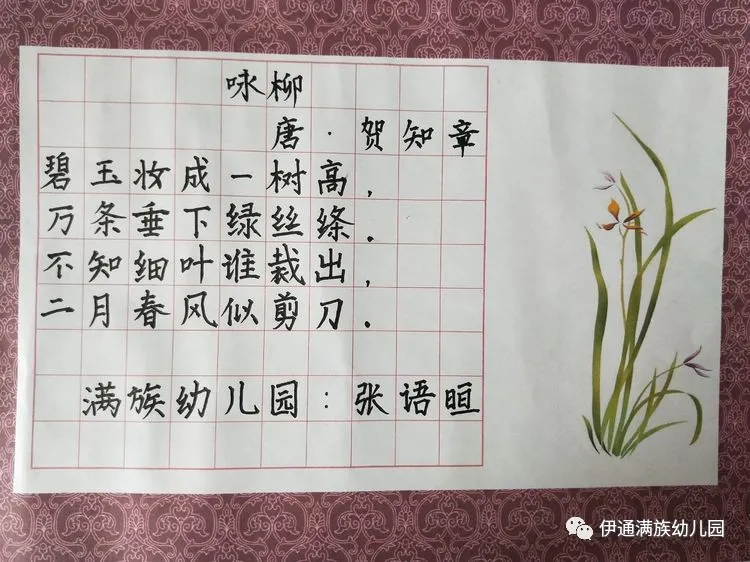 咏柳
唐·贺知章
碧玉妆成一树高,
万条垂下绿丝绦.
不知细叶谁裁出,
二月春风似剪刀.
满族幼儿园:张语晅
伊通满族幼儿园